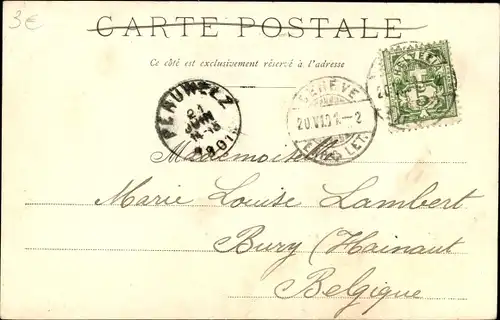 3€
CARTE POSTALE
Ce côté est exclusivement réservé à l'adresse
PERUWELZ
21
JUIN
1901
GENÈVE
20.VI.01.-2
LET.
HELVETIA
Mademoiselle
Marie Louise Lambert
Bury (Hainaut
Belgique